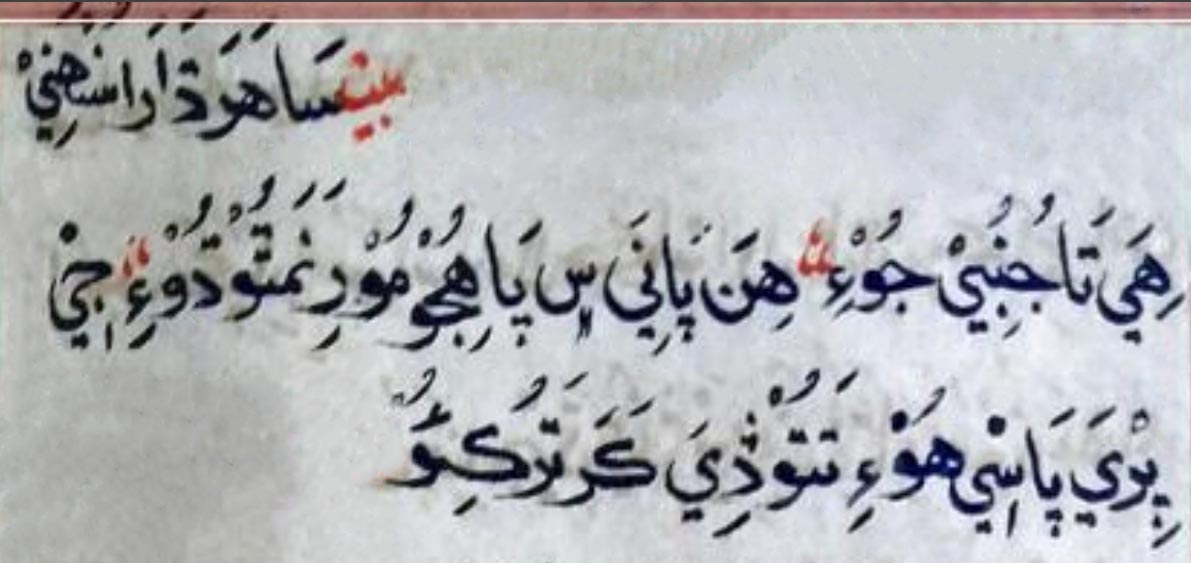 بيت سَاهَرَ دَارَا سُنَهِنِيْ
هِيَ تَا جُنُبِيْ جُوْءِ هِنَ پَانِيَ سٖ پَاهِجُوْ مُوْرِ نَمَتُوْ دُوْءِ جٖيْ
پِرْيَ پَاسٖيْ هُوْءِ تَنتُوْ ڎِيَ ڪَرَ تُرَڪِئُو